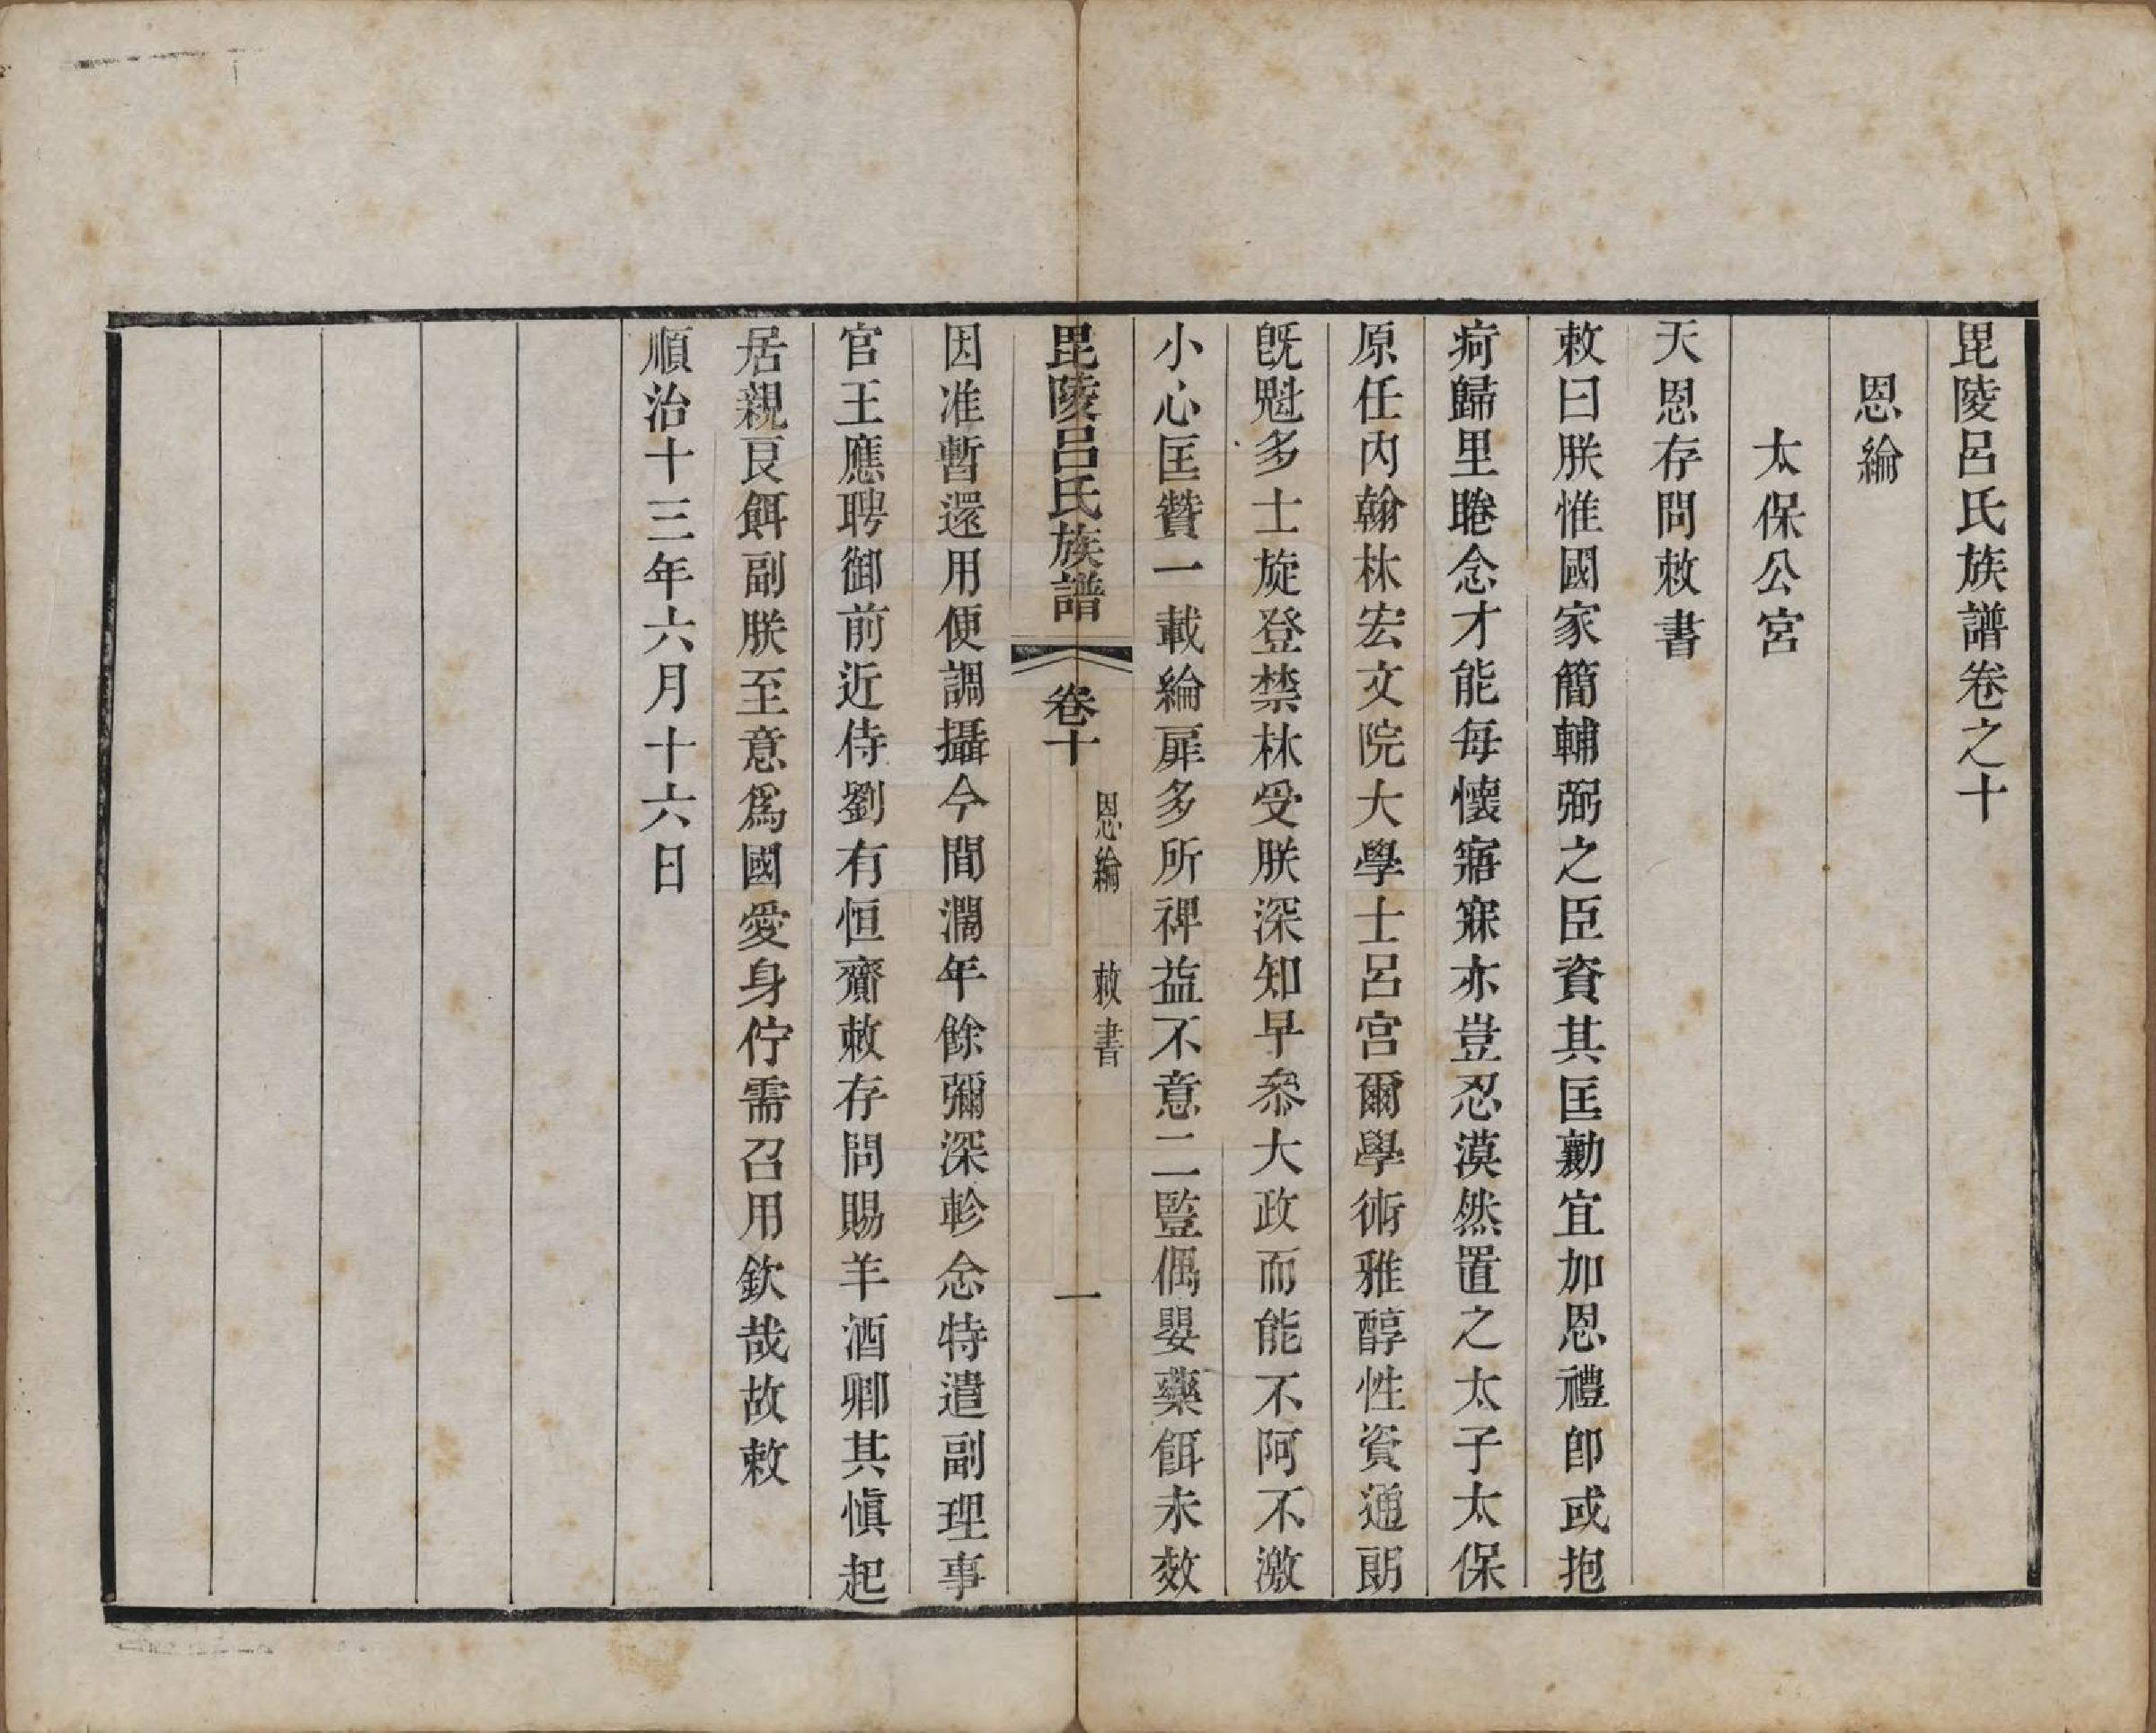 毘陵呂氏族譜卷之十
恩綸
太保公宮
天恩存問敕書
敕曰朕惟國家簡輔弼之臣資其匡勷宜加恩禮卽或抱
疴歸里睠念才能每懷寤寐亦豈忍漠然置之太子太保
原任內翰林宏文院大學士呂宮爾學術雅醇性資通朗
旣魁多士旋登禁林受朕深知早叅大政而能不阿不激
小心匡贊一載綸扉多所禆益不意二豎偶嬰藥餌未效
毘陵呂氏族譜 卷十 恩綸 敕書 一
因准暫還用便調攝今間濶年餘彌深軫念特遣副理事
官王應聘御前近侍劉有恒齎敕存問賜羊酒卿其愼起
居親良餌副朕至意爲國愛身佇需召用欽哉故敕
順治十三年六月十六日